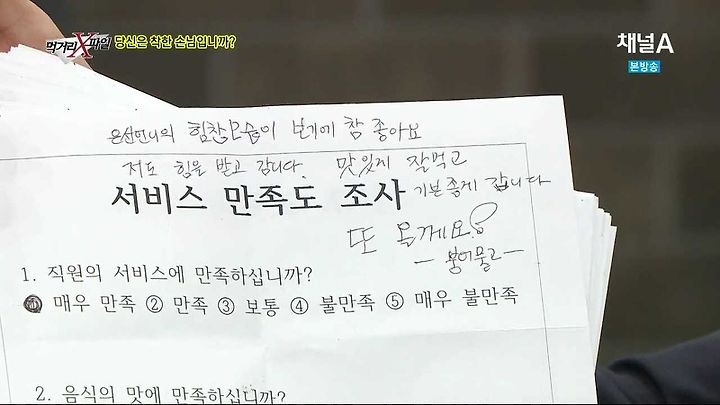 먹거리X파일 당신은 착한 손님입니까?
채널A
본방송
은선언니의 힘찬모습이 보기에 참 좋아요
저도 힘을 받고 갑니다. 맛있게 잘먹고
서비스 만족도 조사 기분좋게 갑니다
또 올게요
1. 직원의 서비스에 만족하십니까?
① 매우 만족 ② 만족 ③ 보통 ④ 불만족 ⑤ 매우 불만족
2. 음식의 맛에 만족하십니까?